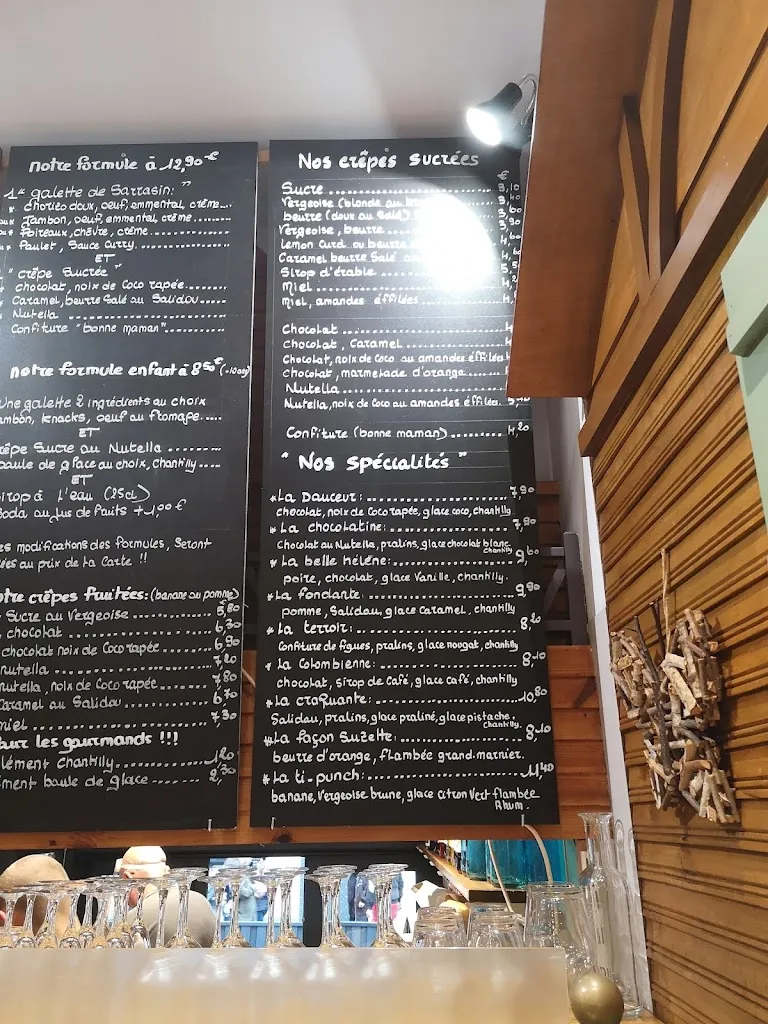 notre formule à 12,90€
1" galette de Sarrasin: "
* chorizo doux, oeuf, emmental, crème...
Jambon, oeuf, emmental, crème
Poireaux, chèvre, crème
Poulet, Sauce Curry
ET
" crêpe Sucrée "
chocolat, noix de Coco rapée
Caramel, beurre Salé au Salidou
Nutella
Confiture "bonne maman"
notre formule enfant à 8,50€
une galette 2 ingrédients au choix
jambon, knacks, oeuf ou fromage
ET
crêpe Sucre ou Nutella
boule de glace au choix, chantilly
ET
sirop à L'eau (25cl)
soda ou Jus de fruits +1,00€
modifications des formules, seront
au prix de la Carte !!
notre crêpes fruitées: (banane ou pomme)
Sucre ou Vergeoise 5,80
chocolat 6,30
chocolat noix de Coco rapée 6,90
nutella 7,20
nutella, noix de Coco rapée 7,80
Caramel ou Salidou 6,70
miel 7,30
Pour les gourmands !!!
supplément Chantilly 1,20
supplément boule de glace 2,30
Nos crêpes sucrées
€
Sucre
Vergeoise (blonde ou
beurre (doux ou Salé)
Vergeoise, beurre
Lemon Curd ou beurre
Caramel beurre Salé
Sirop d'érable
Miel
Miel, amandes éffilées
Chocolat
chocolat, Caramel
Chocolat, noix de Coco ou amandes éffilées
chocolat, marmelade d'orange
Nutella
Nutella, noix de Coco ou amandes éffilées.
Confiture (bonne maman) 4,20
" Nos spécialités "
*La Douceur: 7,90
chocolat, noix de Coco rapée, glace coco, chantilly
*La chocolatine: 7,80
Chocolat ou Nutella, pralins, glace chocolat blanc,
chantilly
*La belle hélène: 9,60
poire, chocolat, glace Vanille, chantilly.
*La fondante: 9,90
pomme, Salidou, glace Caramel, chantilly
*La terroir: 8,20
Confiture de figues, pralins, glace nougat, chantilly
*La Colombienne: 8,10
chocolat, sirop de Café, glace café, chantilly
*La croquante: 10,80
Salidou, pralins, glace praliné, glace pistache,
chantilly.
*La façon Suzette: 8,10
beurre d'orange, flambée grand-marnier.
*La ti-punch: 11,40
banane, Vergeoise brune, glace citron Vert flambée
Rhum.